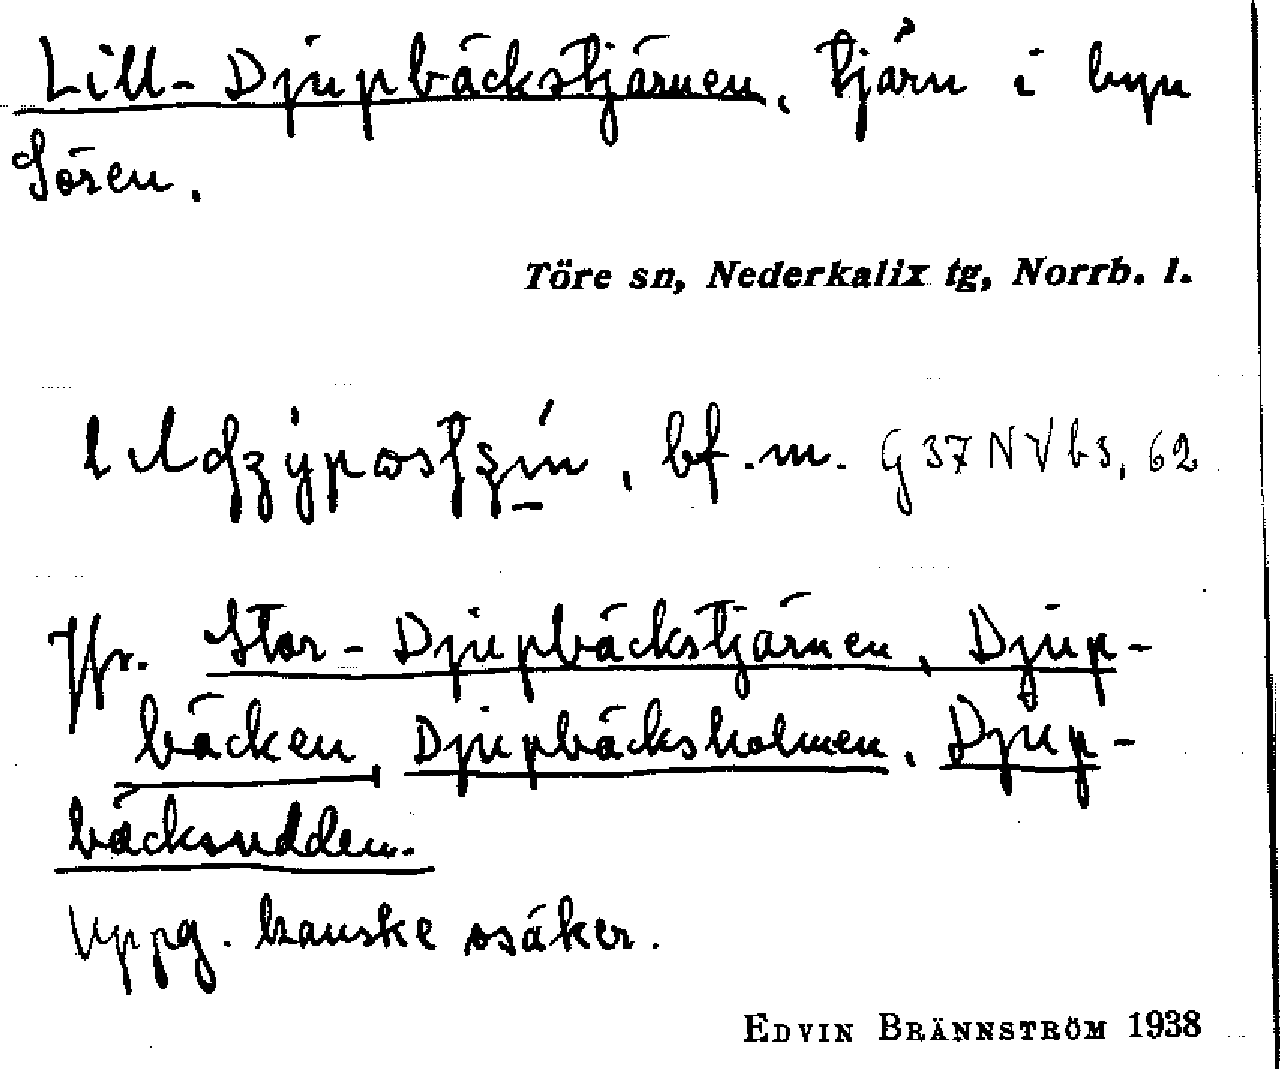 Lill-Djupbäckstjärnen, tjärn i byn
Sören.
Töre sn, Nederkalix tg, Norrb. l.
bf. m. G 37 NV b3, 62
Jfr. Stor-Djupbäckstjärnen, Djup-
bäcken, Djupbäcksholmen, Djup-
bäcksudden.
Uppg. kanske osäker.
EDVIN BRÄNNSTRÖM 1938